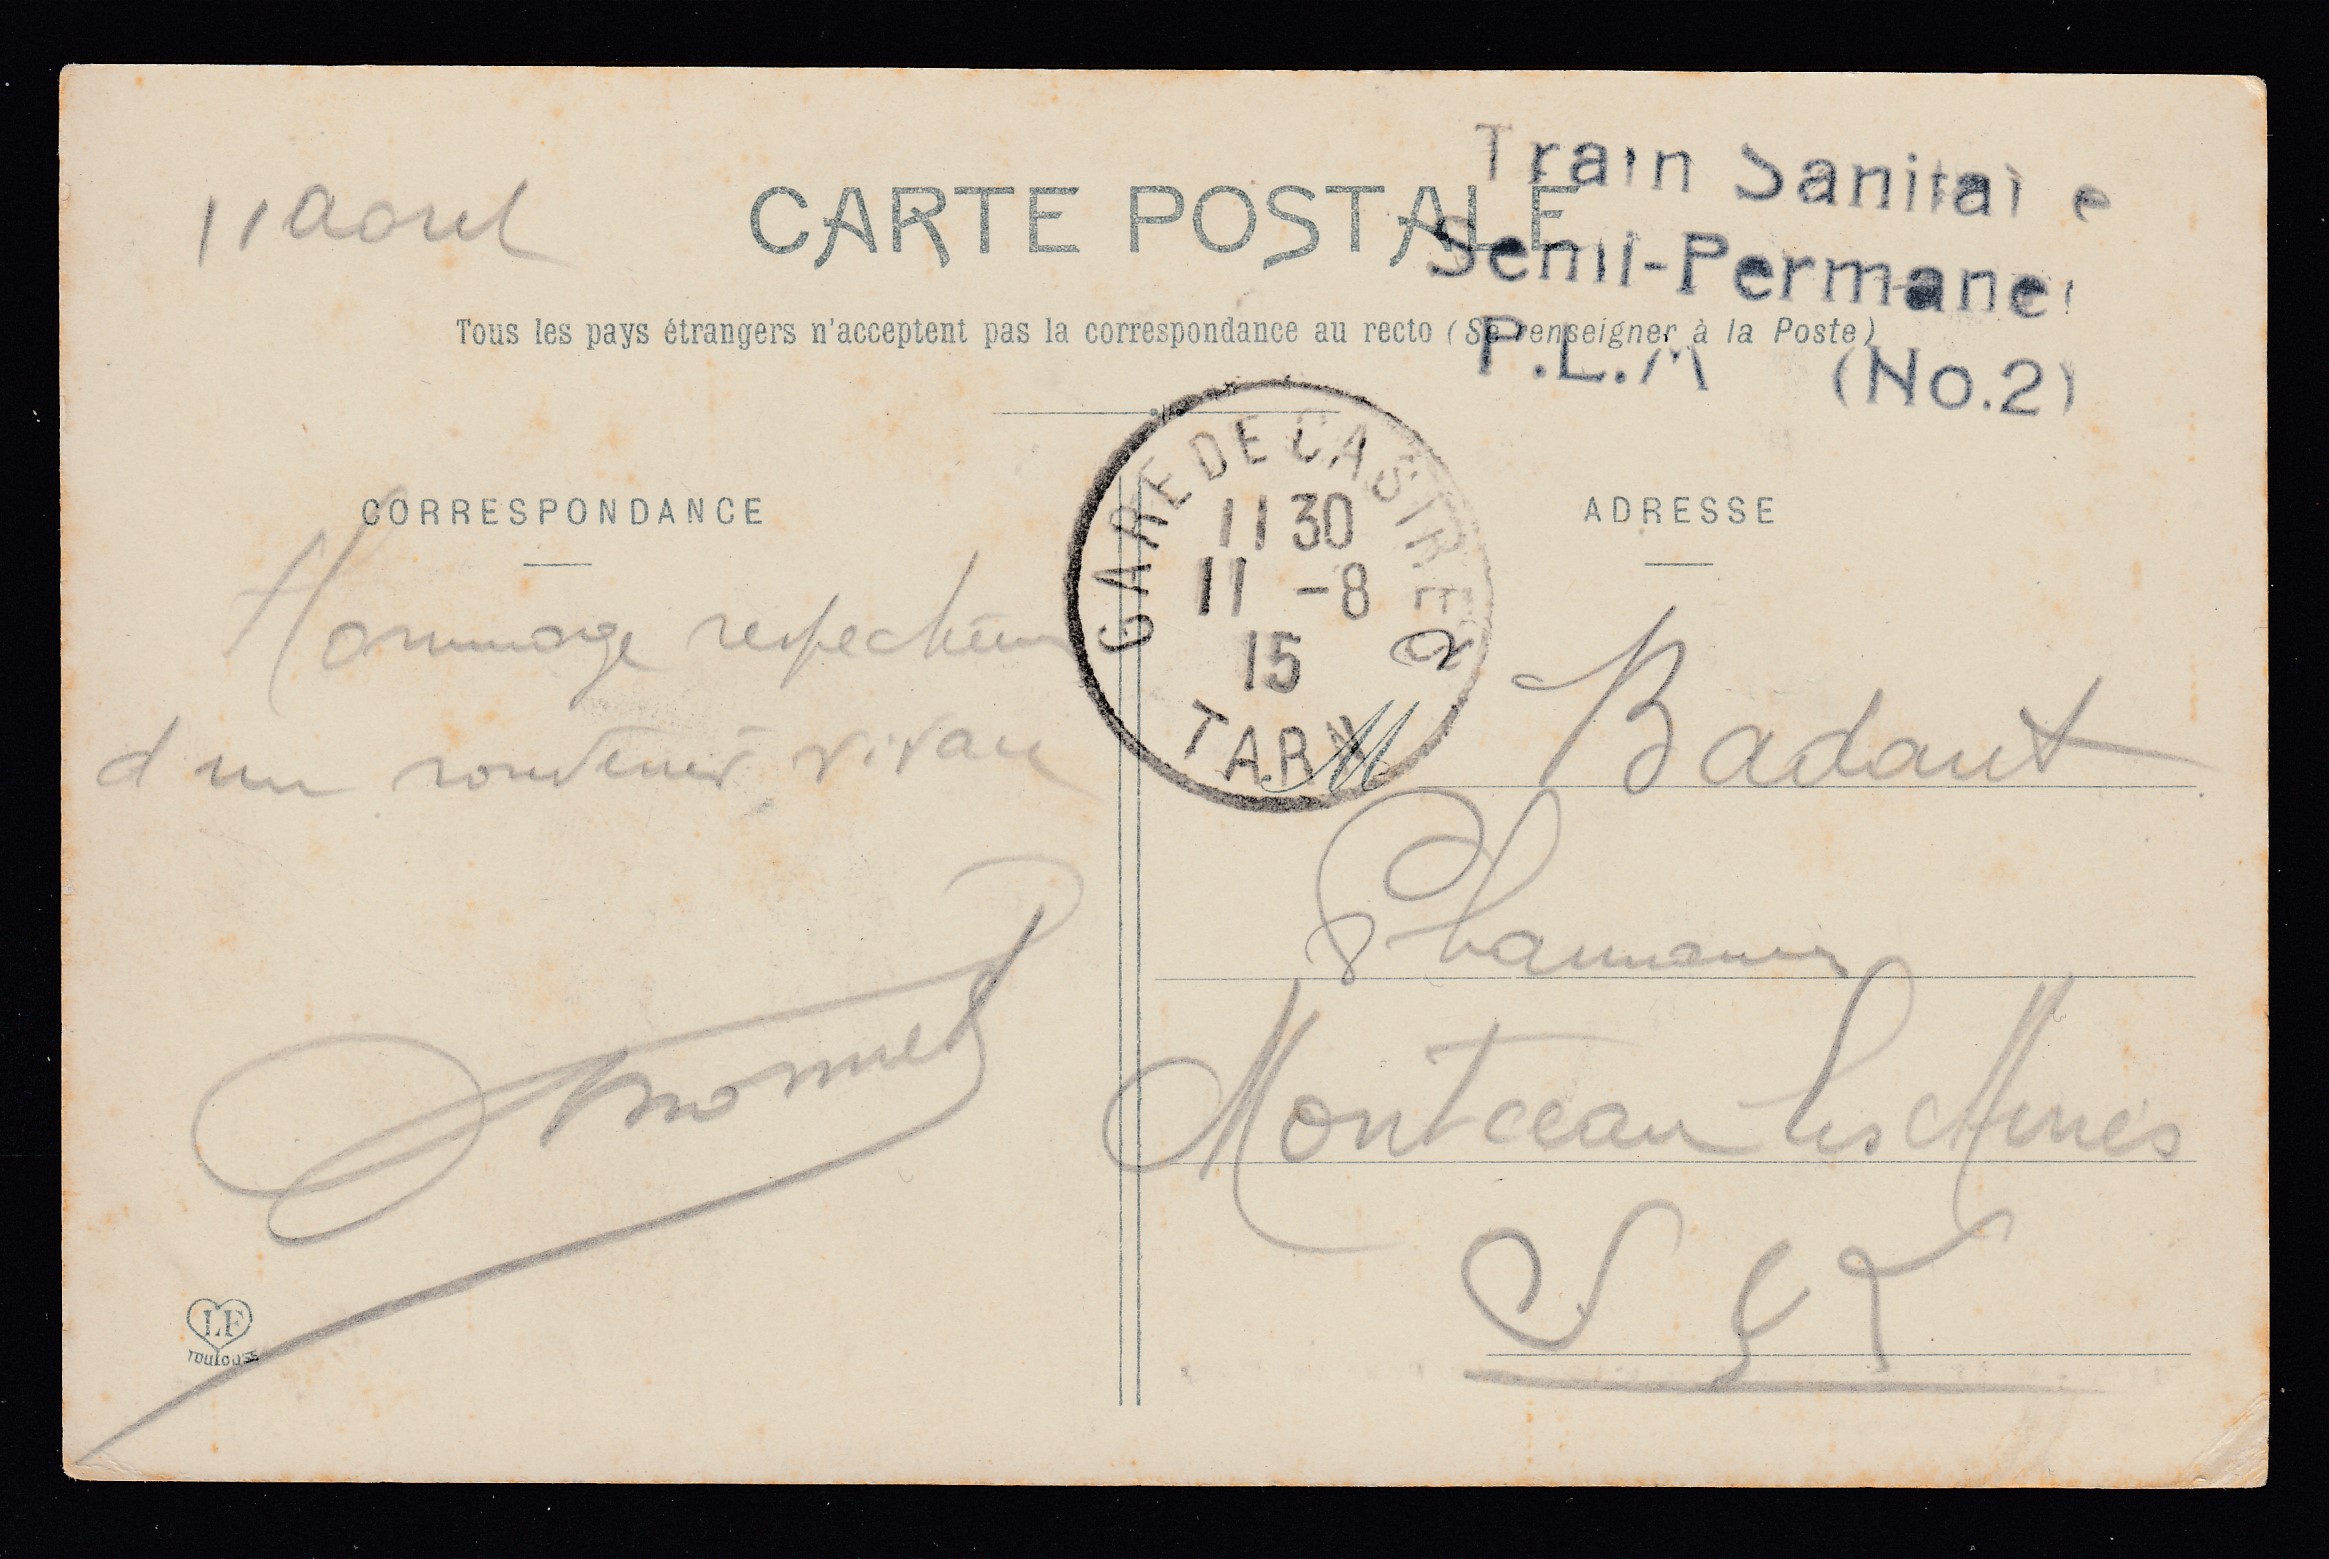 Train Sanitai e
Semi-Permane
P.L.M (No.2)
11 aout
CARTE POSTALE
Tous les pays étrangers n'acceptent pas la correspondance au recto (Se renseigner à la Poste)
GARE DE CASTRES
11 30
11 -8
15
TARN
CORRESPONDANCE
Hommage respectueux
d'un souvenir vivace
ADRESSE
M Badaut
Pharmacien
Montceau les Mines
S & L
LF
TOULOUSE